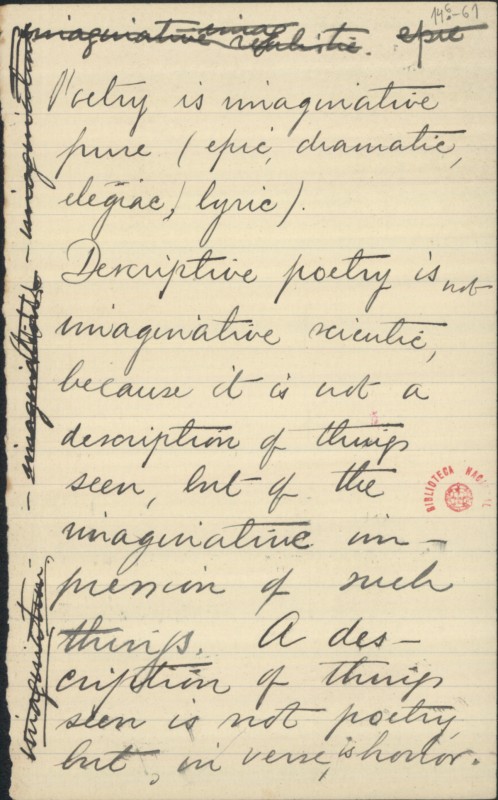 14 6-61
imaginative realistic. epic
Poetry is imaginative
pure (epic, dramatic,
elegiac, lyric).
Descriptive poetry is not
imaginative scientic,
because it is not a
description of things
seen, but of the
imaginative im-
pression of such
things. A des-
cription of things
seen is not poetry
but, in verse, is horror.
imagination, - imagination - imagination
BIBLIOTECA NAC